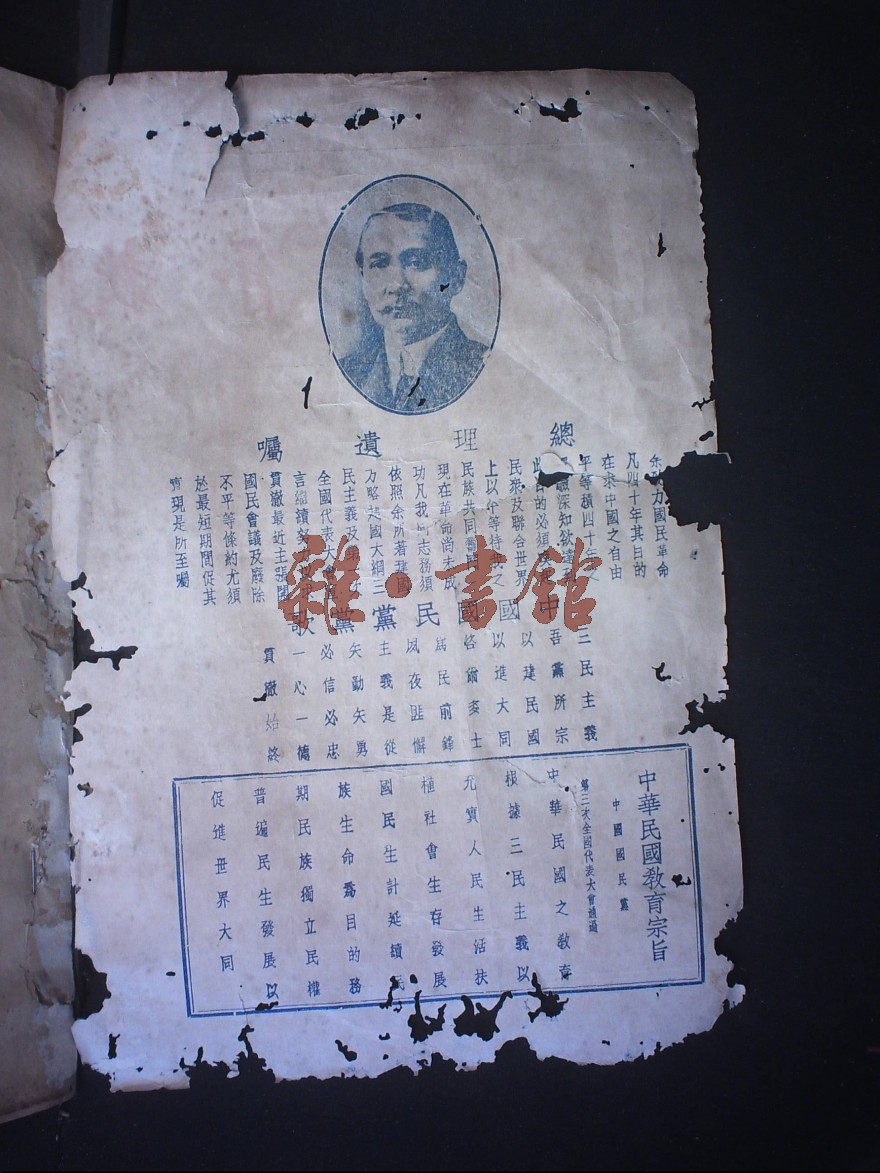 總理遺囑
余力國民革命
凡四十年其目的
在求中國之自由
平等積四十年之
深知欲達
此目的必須
民眾及聯合世界
上以平等待我之
民族共同奮鬥
現在革命尚未成
功凡我同志務須
依照余所著建國
方略建國大綱三
民主義及第一次
全國代表大會
言繼續努力以求
貫徹最近主張開
國民會議及廢除
不平等條約尤須
於最短期間促其
實現是所至囑
中國國民黨黨歌
三民主義
吾黨所宗
以建民國
以進大同
咨爾多士
為民前鋒
夙夜匪懈
主義是從
矢勤矢勇
必信必忠
一心一德
貫徹始終
中華民國教育宗旨
中國國民黨
第三次全國代表大會通過
中華民國之教育
根據三民主義以
充實人民生活扶
植社會生存發展
國民生計延續民
族生命為目的務
期民族獨立民權
普遍民生發展以
促進世界大同
雜·書館